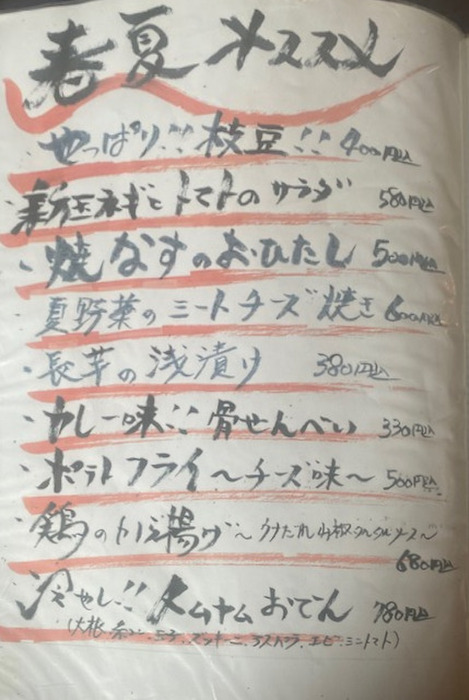 春夏 オススメ
・やっぱり!! 枝豆!! 400円込
・新玉ネギとトマトの サラダ 580円込
・焼なすのおひたし 500円込
・夏野菜のミートチーズ焼き 600円込
・長芋の浅漬け 380円込
・カレー味!! 骨せんべい 330円込
・ポテトフライ〜チーズ味〜 500円込
・鶏の から揚げ〜
680円込
・冷やし!! トムヤムおでん 780円込
(大根・玉子・ズッキーニ・アスパラ・エビ・ミニトマト)